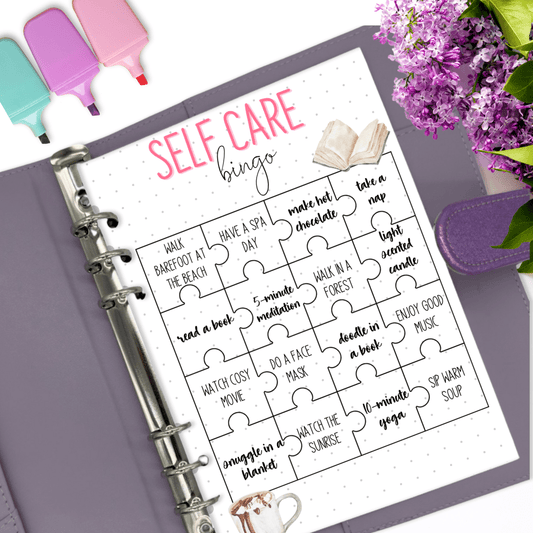 SELF CARE
bingo
WALK
BAREFOOT AT
THE BEACH
HAVE A SPA
DAY
make hot
chocolate
take a
nap
read a book
5-minute
meditation
WALK IN A
FOREST
light
scented
candle
WATCH COSY
MOVIE
DO A FACE
MASK
doodle in
a book
ENJOY GOOD
MUSIC
snuggle in a
blanket
WATCH THE
SUNRISE
10-minute
yoga
SIP WARM
SOUP